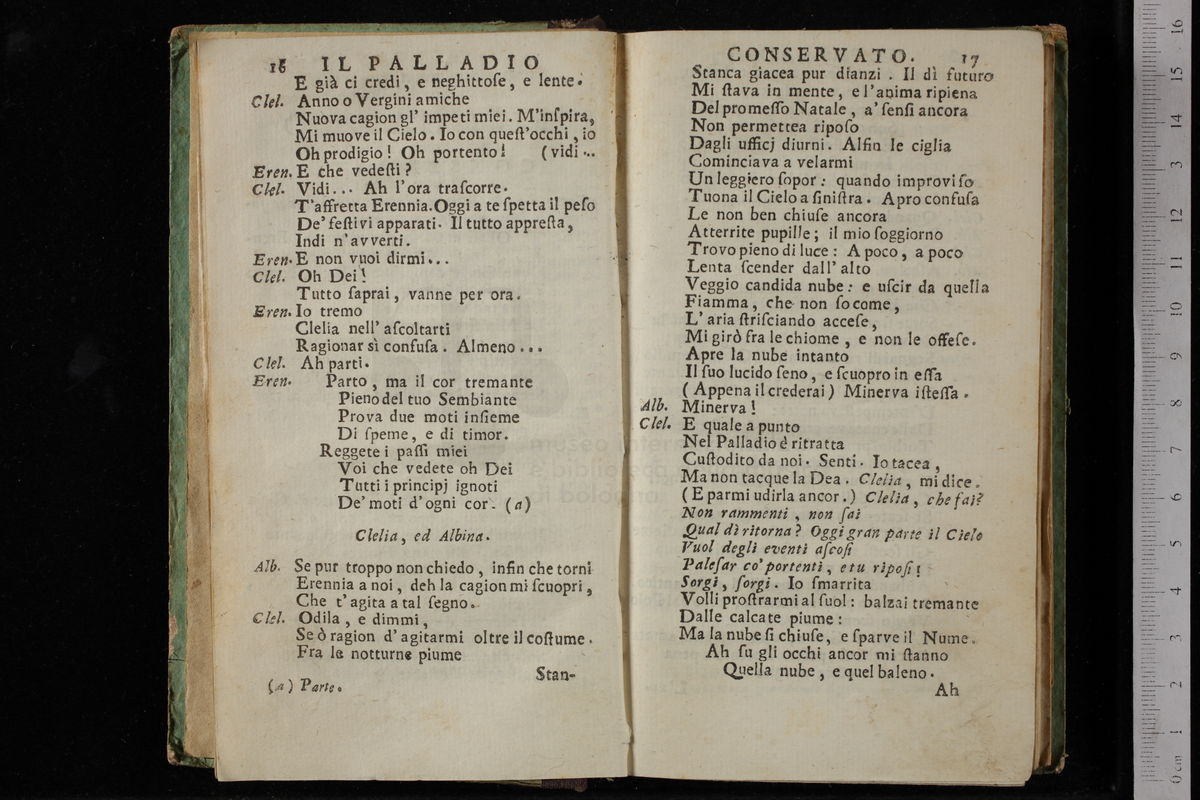 16 IL PALLADIO
E già ci credi, e neghittoſe, e lente.
Clel. Anno o Vergini amiche
Nuova cagion gl' impeti miei. M'inſpira,
Mi muove il Cielo. Io con queſt'occhi, io
Oh prodigio! Oh portento! (vidi...
Eren. E che vedeſti?
Clel. Vidi... Ah l'ora traſcorre.
T'affretta Erennia. Oggi a te ſpetta il peſo
De' feſtivi apparati. Il tutto appreſta,
Indi n'avverti.
Eren. E non vuoi dirmi...
Clel. Oh Dei!
Tutto ſaprai, vanne per ora.
Eren. Io tremo
Clelia nell' aſcoltarti
Ragionar sì confuſa. Almeno...
Clel. Ah parti.
Eren. Parto, ma il cor tremante
Pieno del tuo Sembiante
Prova due moti inſieme
Di ſpeme, e di timor.
Reggete i paſſi miei
Voi che vedete oh Dei
Tutti i principj ignoti
De' moti d'ogni cor. (a)
Clelia, ed Albina.
Alb. Se pur troppo non chiedo, infin che torni
Erennia a noi, deh la cagion mi ſcuopri,
Che t'agita a tal ſegno.
Clel. Odila, e dimmi,
Se ò ragion d'agitarmi oltre il coſtume.
Fra le notturne piume
Stan-
(a) Parte.
CONSERVATO. 17
Stanca giacea pur dianzi. Il dì futuro
Mi ſtava in mente, e l'anima ripiena
Del promeſſo Natale, a' ſenſi ancora
Non permettea ripoſo
Dagli ufficj diurni. Alfin le ciglia
Cominciava a velarmi
Un leggiero ſopor: quando improviſo
Tuona il Cielo a ſiniſtra. Apro confuſa
Le non ben chiuſe ancora
Atterrite pupille; il mio ſoggiorno
Trovo pieno di luce: A poco, a poco
Lenta ſcender dall' alto
Veggio candida nube: e uſcir da quella
Fiamma, che non ſo come,
L' aria ſtriſciando acceſe,
Mi girò fra le chiome, e non le offeſe.
Apre la nube intanto
Il ſuo lucido ſeno, e ſcuopro in eſſa
(Appena il crederai) Minerva iſteſſa.
Alb. Minerva!
Clel. E quale a punto
Nel Palladio è ritratta
Cuſtodito da noi. Senti. Io tacea,
Ma non tacque la Dea. Clelia, mi dice.
(E parmi udirla ancor.) Clelia, che fai?
Non rammenti, non ſai
Qual dì ritorna? Oggi gran parte il Cielo
Vuol degli eventi aſcoſi
Paleſar co' portenti, e tu ripoſi!
Sorgi, ſorgi. Io ſmarrita
Volli proſtrarmi al ſuol: balzai tremante
Dalle calcate piume:
Ma la nube ſi chiuſe, e ſparve il Nume.
Ah ſu gli occhi ancor mi ſtanno
Quella nube, e quel baleno.
Ah